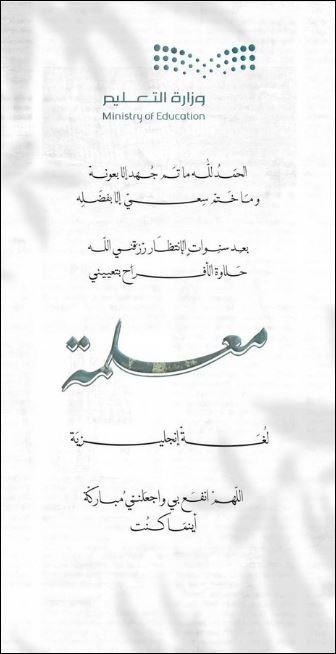 وزارة التعليم
Ministry of Education
الحَمدُ لله ما تمّ جُهد إلا بعونه
وما خَتم سِعيّ إلا بفضَله
بعد سنوات الإنتظار رزقني الله
حلاوة الأفراح بتعييني
معلمة
لُغَة إنجليزية
اللهمّ انفع بي واجعَلني مُباركة
أينمَا كنُت